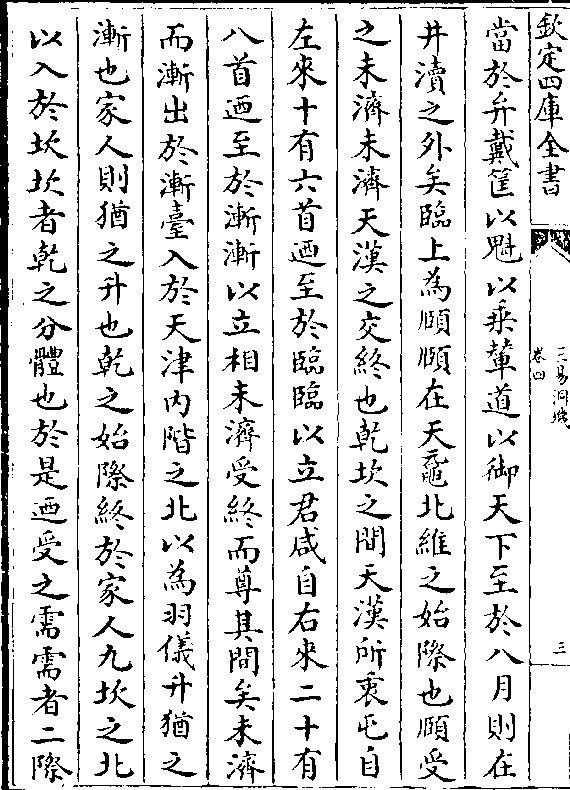 欽定四庫全書
三易洞璣
卷四
三
當於弁戴筐以魁以乘輦道以御天下至於八月則在
井瀆之外矣臨上為頤頤在天黿北維之始際也頤受
之未濟未濟天漢之交終也乾坎之間天漢所衷屯自
左來十有六首迺至於臨臨以立君咸自右來二十有
八首迺至於漸漸以立相未濟受終而尊其間矣未濟
而漸出於漸臺入於天津內階之北以為羽儀升猶之
漸也家人則猶之升也乾之始際終於家人九坎之北
以入於坎坎者乾之分體也於是迺受之需需者二際